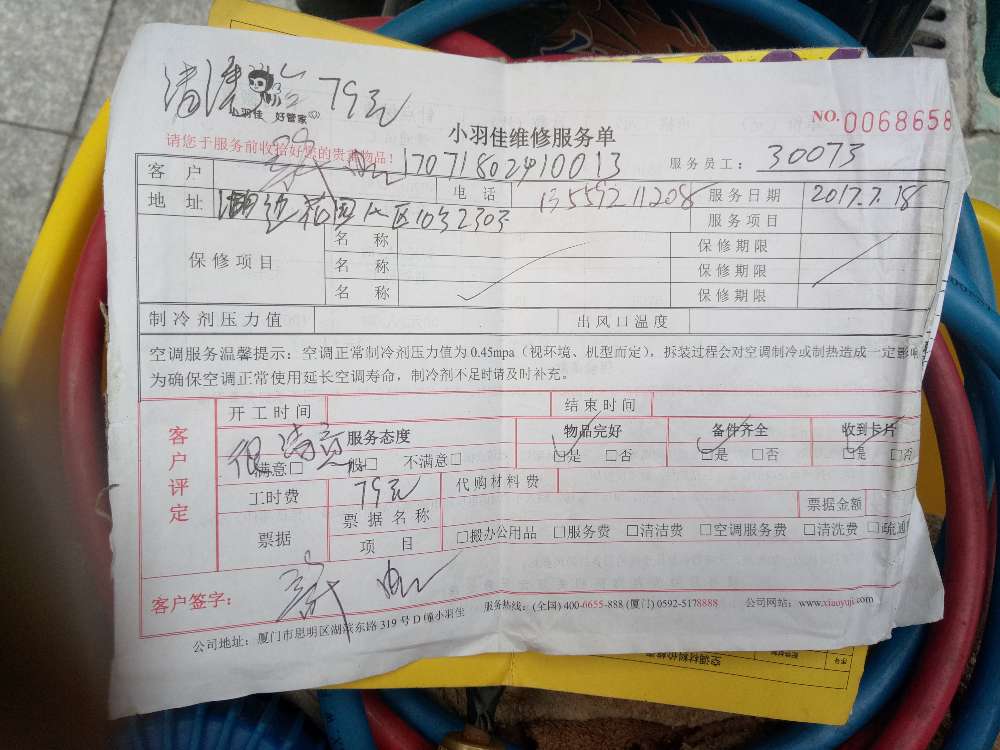 清洗 79元
小羽佳 好管家
小羽佳维修服务单
NO. 0068658
请您于服务前收拾好您的贵重物品!
服务员工: 30073
客户 17071802410013
地址 湖边花园A区10号2303 电话 13559211208 服务日期 2017.7.18
服务项目
保修项目 名称 保修期限
名称 保修期限
名称 保修期限
制冷剂压力值 出风口温度
空调服务温馨提示: 空调正常制冷剂压力值为 0.45mpa (视环境、机型而定), 拆装过程会对空调制冷或制热造成一定影响
为确保空调正常使用延长空调寿命, 制冷剂不足时请及时补充。
客户评定
开工时间 结束时间
服务态度 物品完好 备件齐全 收到卡片
很满意
满意□ 一般□ 不满意□ □是 □否 □是 □否 □是 □否
工时费 79元 代购材料费
票据 票据名称 票据金额
项目 □搬办公用品 □服务费 □清洁费 □空调服务费 □清洗费 □疏通
客户签字:
公司地址: 厦门市思明区湖滨东路 319 号 D 幢小羽佳 服务热线: (全国) 400-6655-888 (厦门) 0592-5178888 公司网站: www.xiaoyuji.com